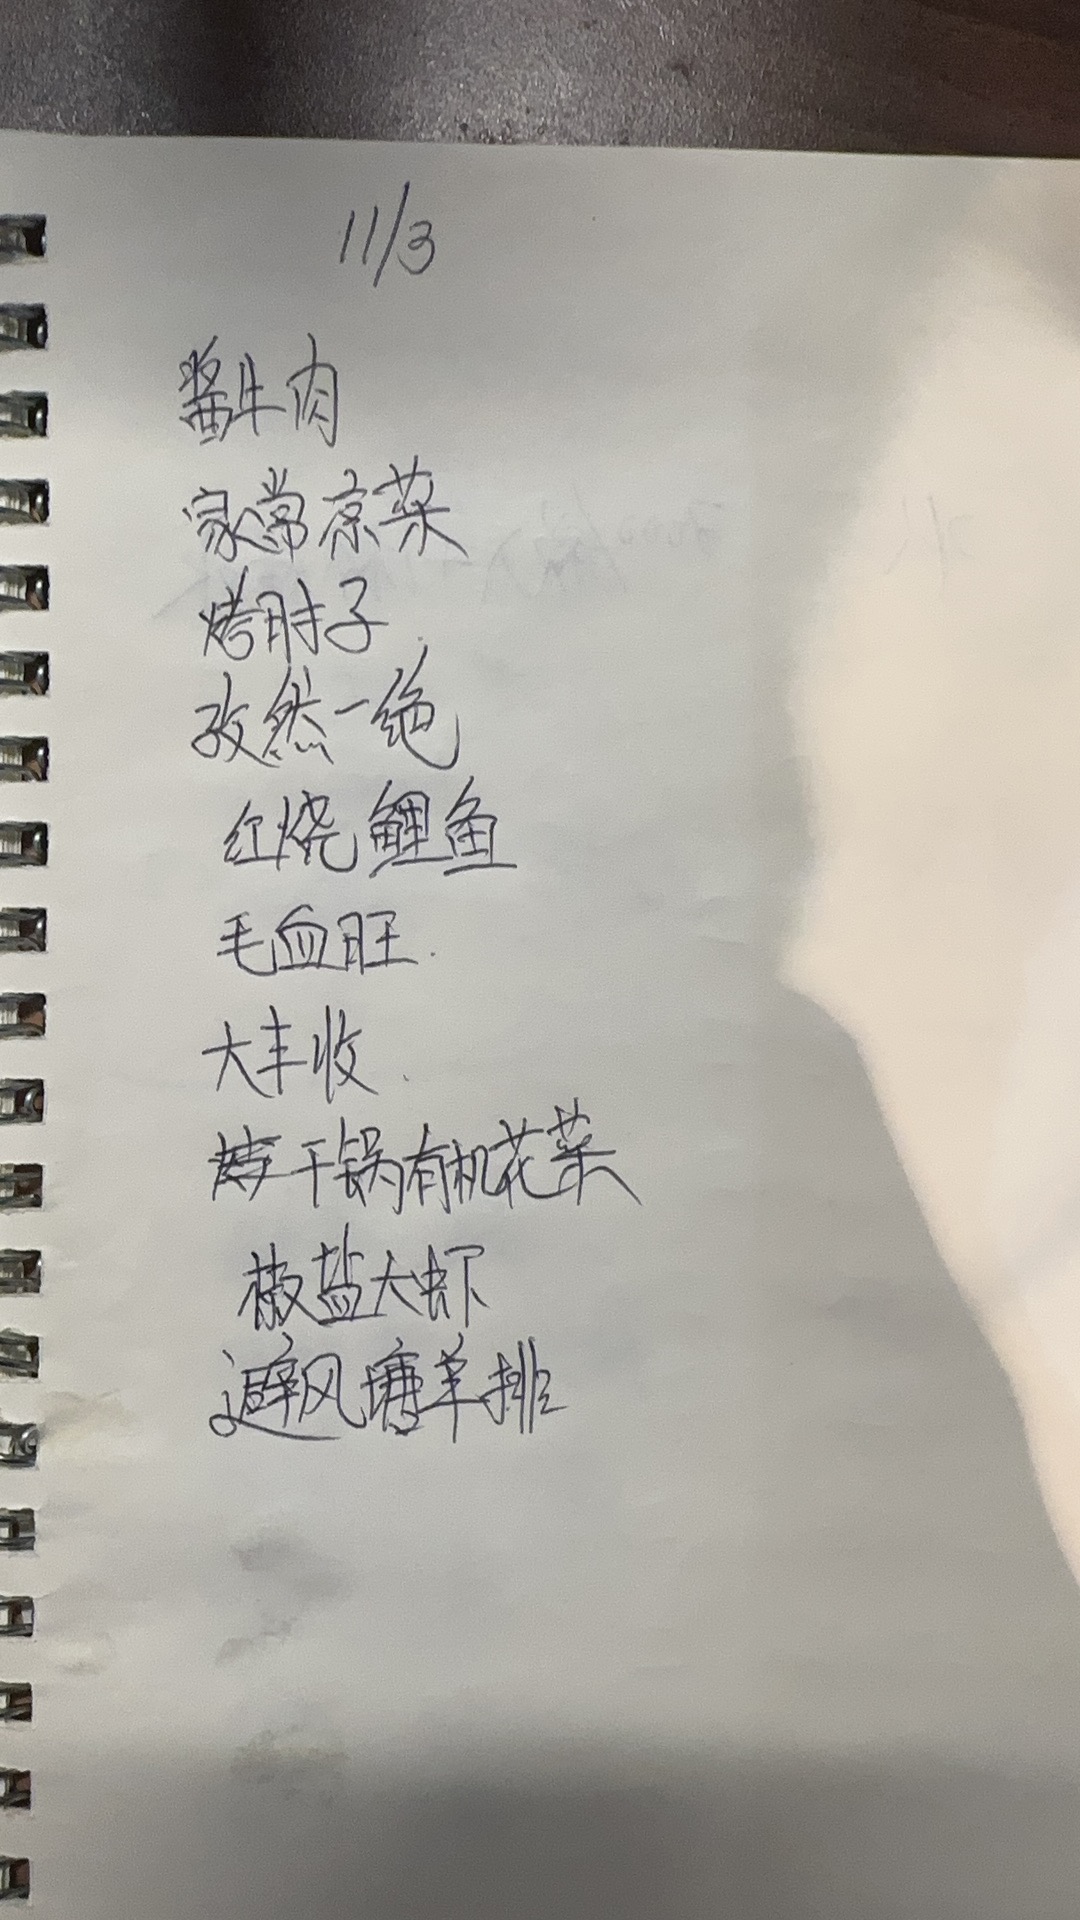 11/3
酱牛肉
家常凉菜
烤肘子
孜然一绝
红烧鲤鱼
毛血旺.
大丰收.
干锅有机花菜
椒盐大虾
避风塘羊排